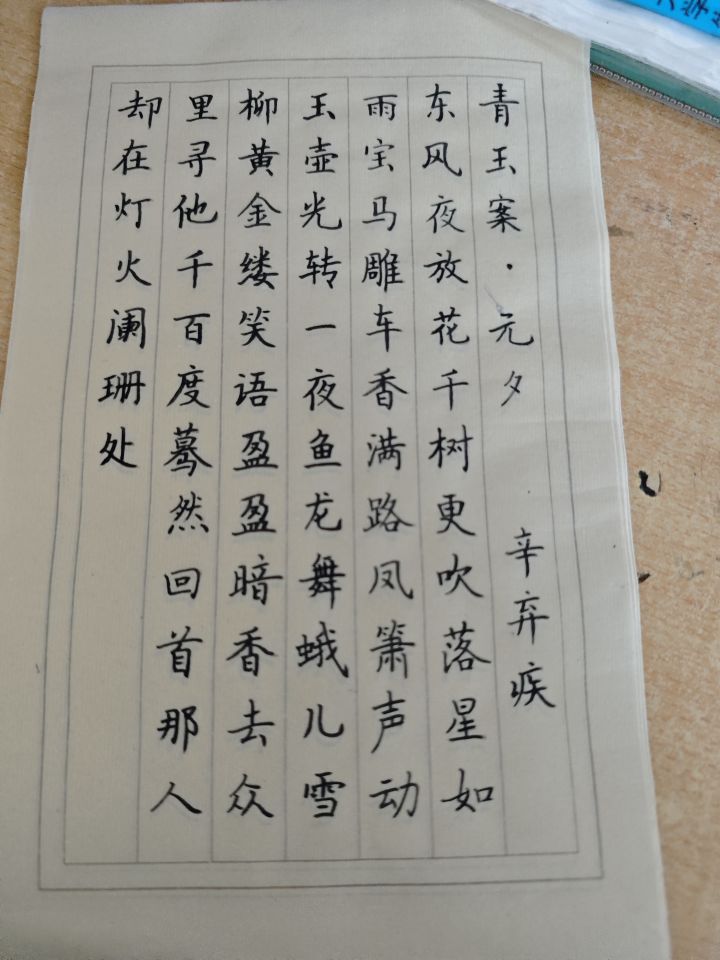 青玉案·元夕 辛弃疾
东风夜放花千树更吹落星如
雨宝马雕车香满路凤箫声动
玉壶光转一夜鱼龙舞蛾儿雪
柳黄金缕笑语盈盈暗香去众
里寻他千百度蓦然回首那人
却在灯火阑珊处